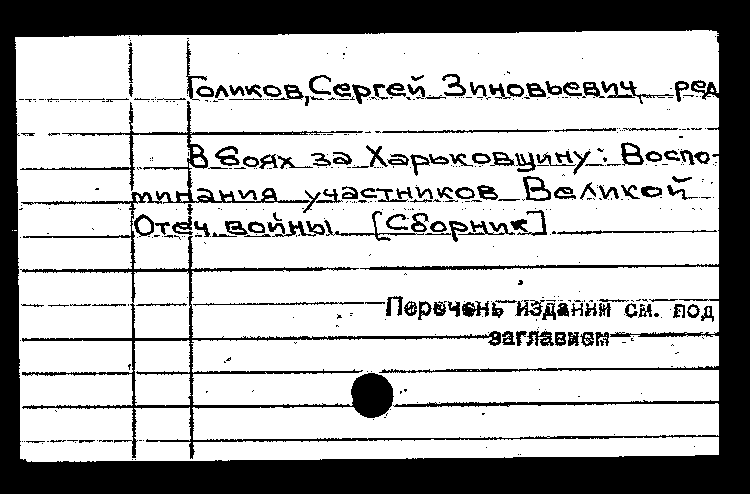 Голиков, Сергей Зиновьевич, ред
В боях за Харьковщину: Воспо-
минания участников Великой
Отеч. войны. [Сборник].
Перечень изданий см. под
заглавием